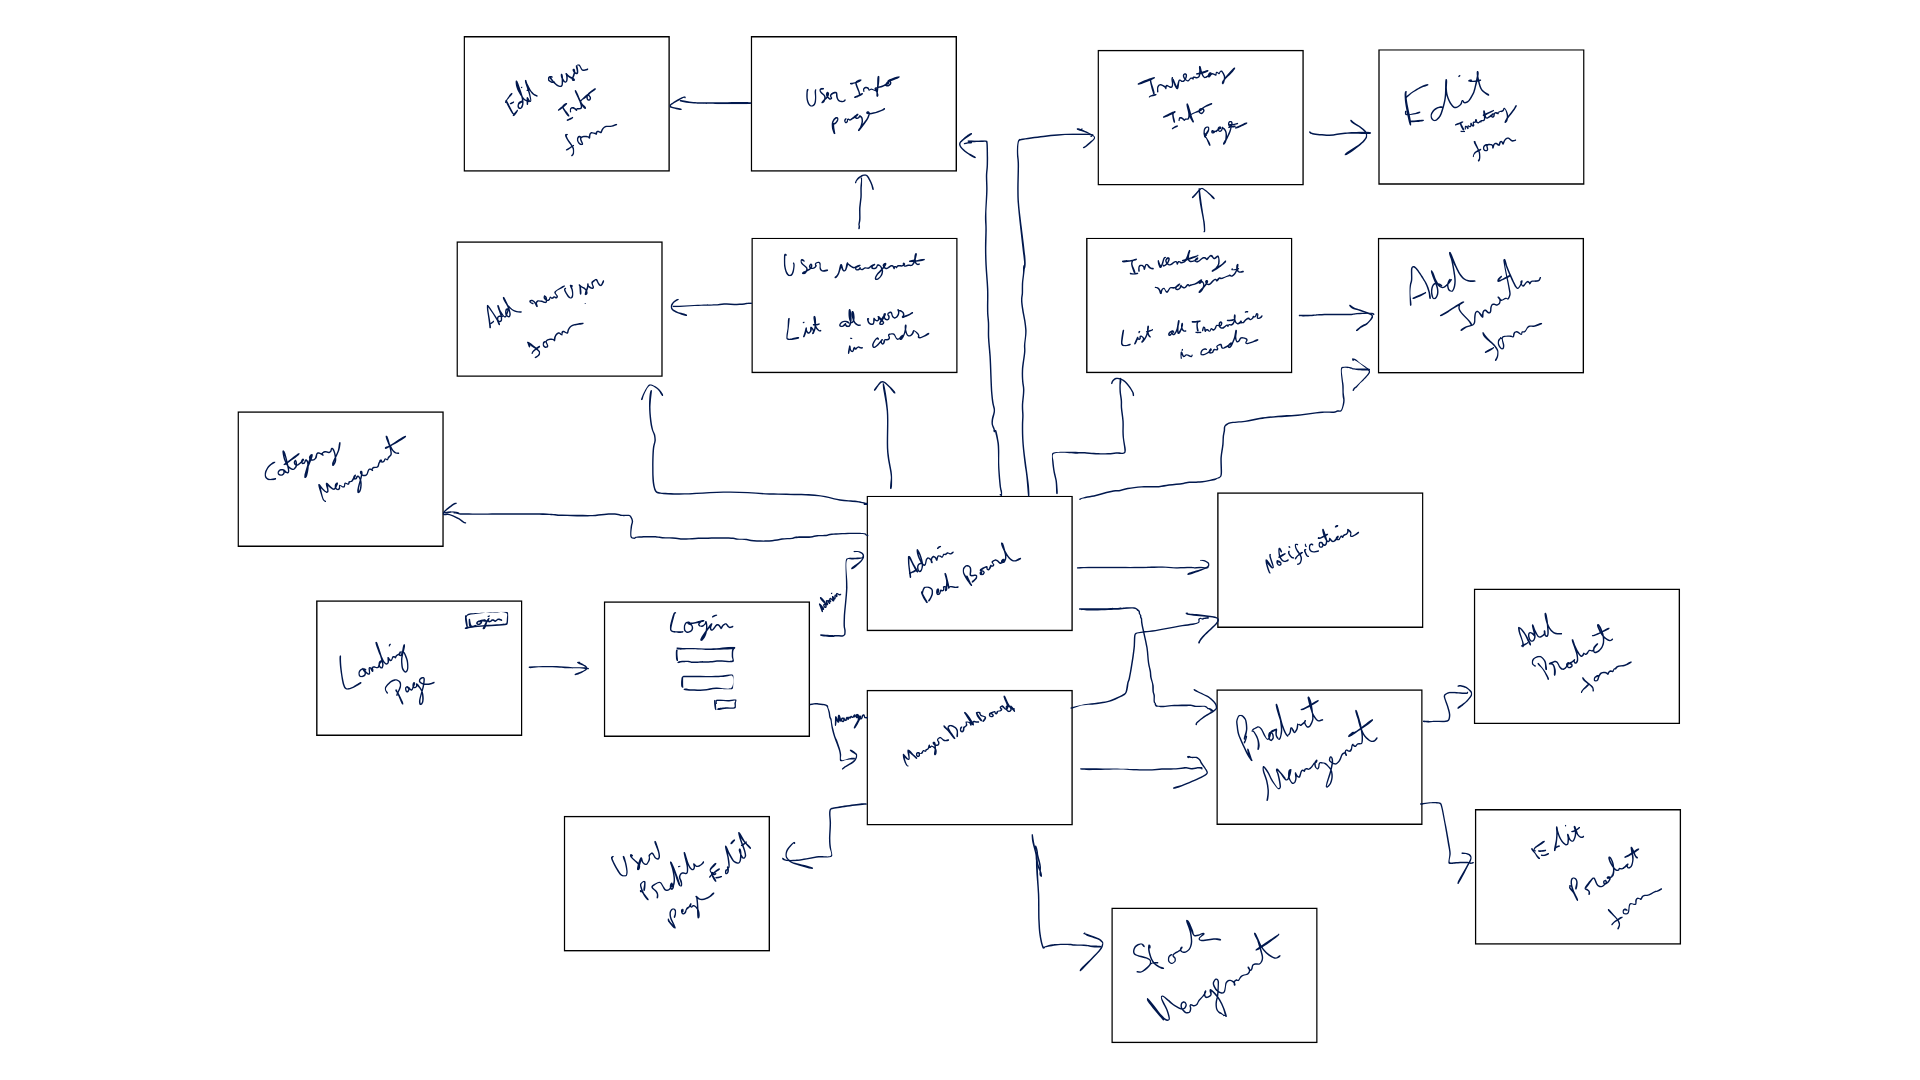 Edit User
Info
form
User Info
page
Inventory
Info
Page
Edit
Inventory
form
Add new User
form
User Management
List all users
in cards
Inventory
management
List all Inventories
in cards
Add
form
Category
Management
Admin
Dash Board
Notifications
Admin
Landing
Page
Login
Login
Manager
Manager DashBoard
Product
Management
Add
Product
form
User
Profile
page Edit
Edit
Product
form
Stock
Management